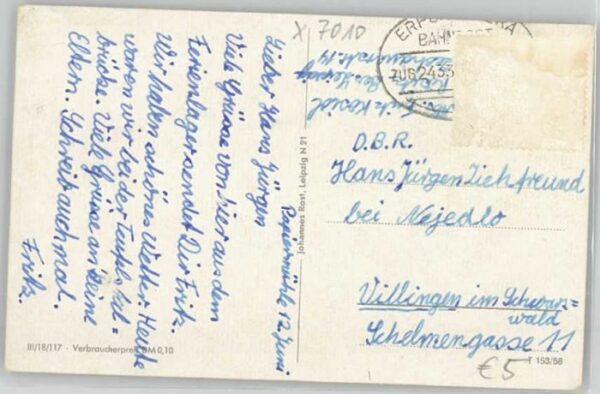 X 7010
Papiermühle 12. Juni
Lieber Hans Jürgen
Viele Grüsse von hier aus dem
Ferienlager sendet Dir Fritz.
Wir haben schönes Wetter. Heute
waren wir bei der Teufels-
brücke. Viele Grüsse an Deine
Eltern. Schreib auch mal.
Fritz.
III/18/117 · Verbraucherpreis DM 0,10
Johannes Rost, Leipzig N 21
BAHNPOST
ZUG 2433
Erich
D.B.R.
Hans Jürgen Ziehfreund
bei Nejedlo
Villingen im Schwarz=
wald
Schelmengasse 11
T 153/58
€5